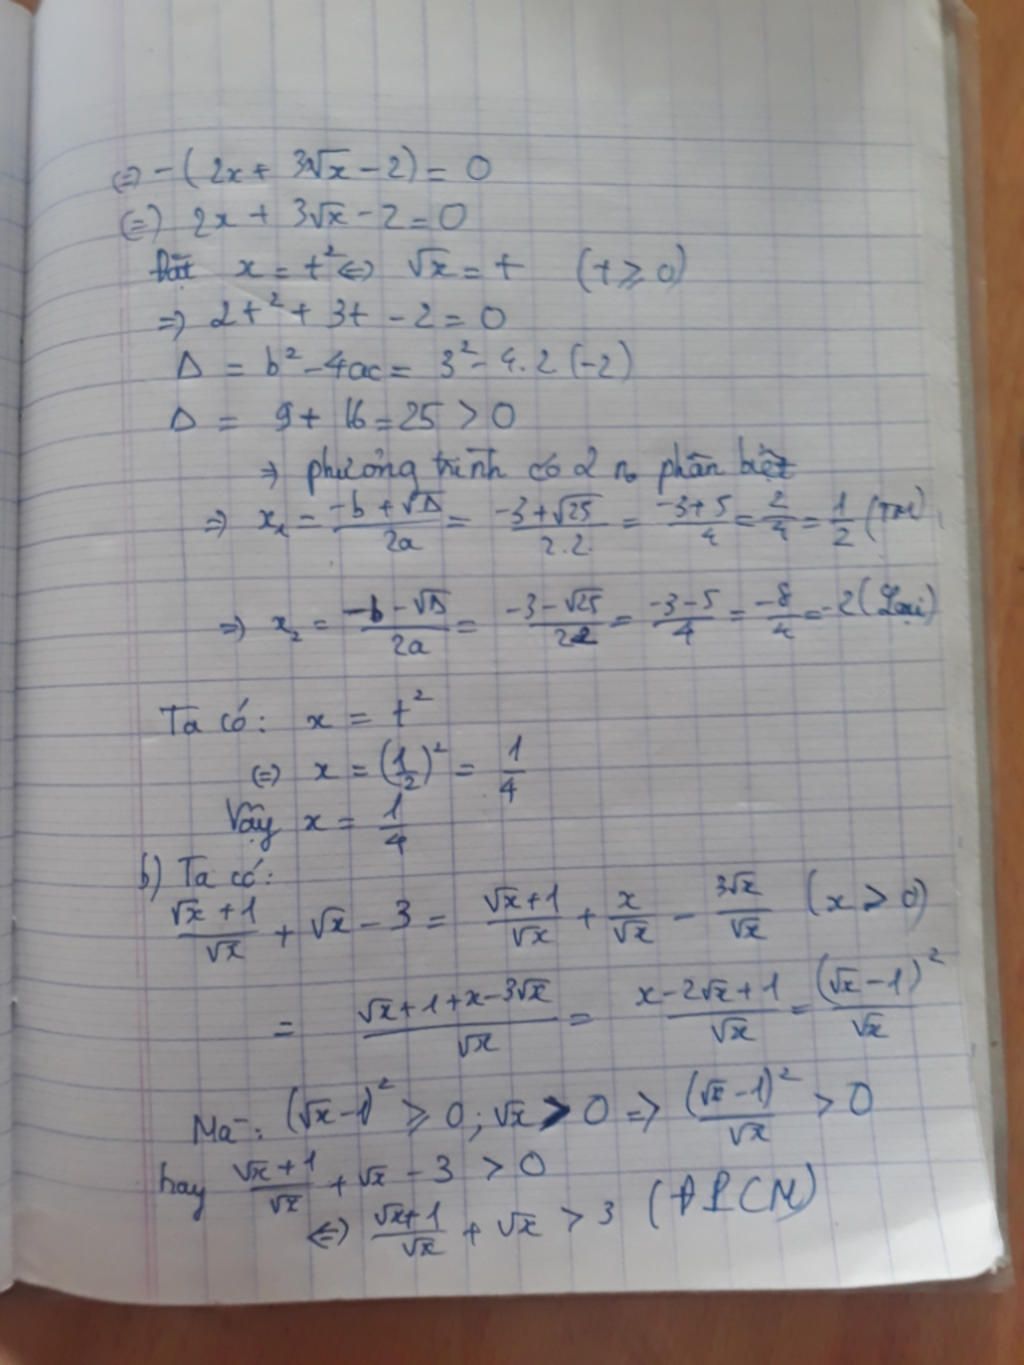 (=) -(2x + 3√x - 2) = 0
(=) 2x + 3√x - 2 = 0
Đặt x = t² <=> √x = t (t ≥ 0)
=> 2t² + 3t - 2 = 0
Δ = b² - 4ac = 3² - 4.2(-2)
Δ = 9 + 16 = 25 > 0
=> phương trình có 2 n₀ phân biệt
=> x₁ = (-b + √Δ)/2a = (-3 + √25)/2.2 = (-3+5)/4 = 2/4 = 1/2 (TM)
=> x₂ = (-b - √Δ)/2a = (-3 - √25)/2.2 = (-3-5)/4 = -8/4 = -2 (Loại)
Ta có: x = t²
(=) x = (1/2)² = 1/4
Vậy x = 1/4
b) Ta có:
(√x + 1)/√x + √x - 3 = (√x + 1)/√x + x/√x - 3√x/√x (x > 0)
= (√x + 1 + x - 3√x)/√x = (x - 2√x + 1)/√x = (√x - 1)²/√x
Mà: (√x - 1)² ≥ 0; √x > 0 => (√x - 1)²/√x > 0
hay (√x + 1)/√x + √x - 3 > 0
<=> (√x + 1)/√x + √x > 3 (ĐPCM)